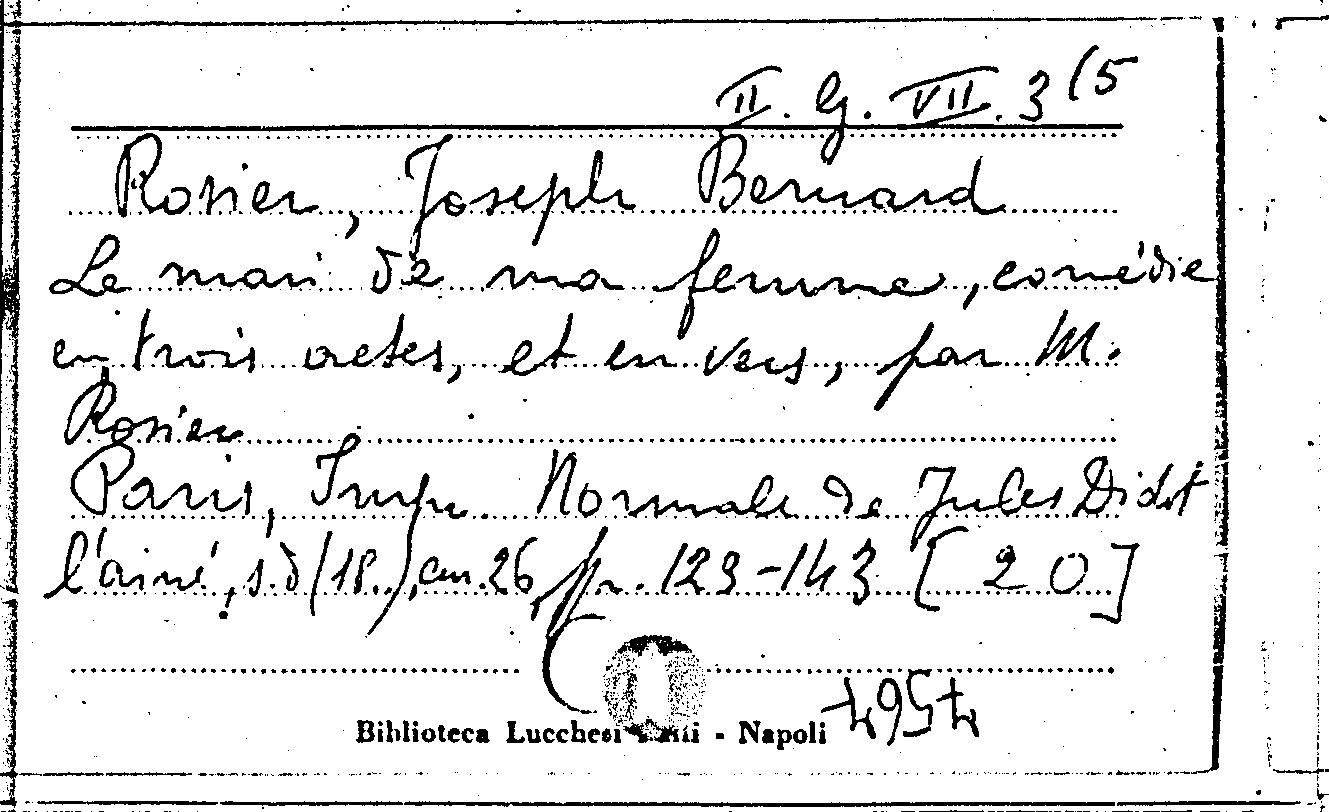 II. G. VII. 3 (5
Rosier, Joseph Bernard
Le mari de ma femme, comédie
en trois actes, et en vers, par M.
Rosier
Paris, Impr. Normale de Jules Didot
l'ainé, s.d (18..), cm. 26, pp. 123-143 [20]
Biblioteca Lucchesi - Napoli